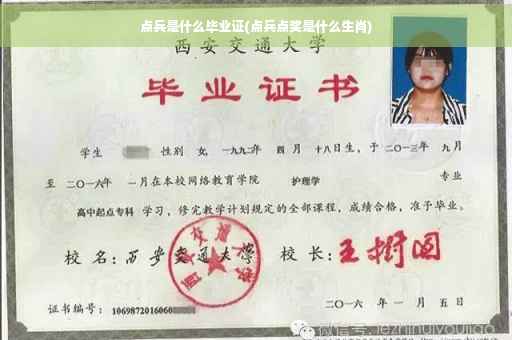 点兵是什么毕业证(点兵点奖是什么生肖)
西安交通大学
毕业证书
学生 性别 女, 一九九二年 四月 十八日生, 于二〇一三年 九月
至 二〇一六年 一月在本校网络教育学院 护理学 专业
高中起点专科 学习, 修完教学计划规定的全部课程, 成绩合格, 准予毕业。
校名: 西安交通大学 校长: 王树国
西安交通大学
证书编号: 1069872016060
二〇一六年 一月 五日
微信号: jezhihuiyoujiao